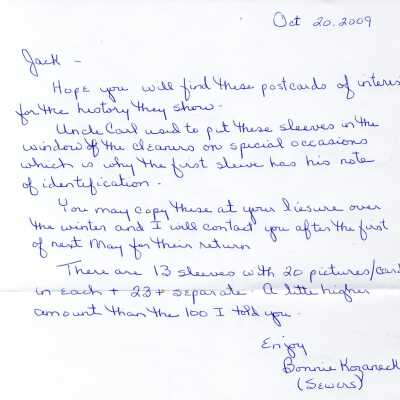 Oct 20, 2009
Jack -
Hope you will find these postcards of interes
for the history they show.
Uncle Carl used to put these sleeves in the
window of the cleaners on special occasions
which is why the first sleeve has his note
of identification.
You may copy these at your liesure over
the winter and I will contact you after the first
of next May for their return
There are 13 sleeves with 20 pictures/car
in each + 23+ separate. A litte higher
amount than the 100 I told you.
Enjoy
Bonnie Kozaneck
(Sewers)